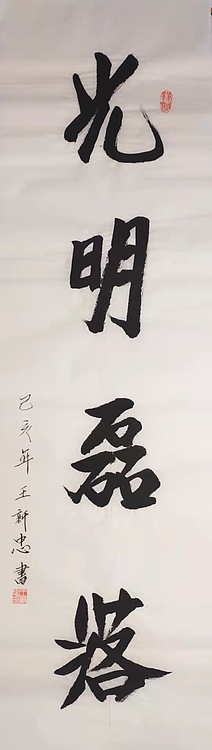 光明磊落
己亥年王新忠書